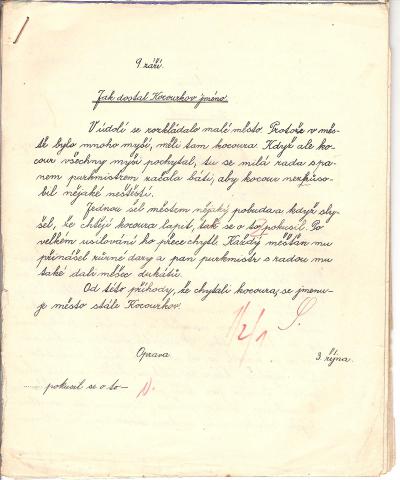 9. září.
Jak dostal Kocourkov jméno.
V údolí se rozkládalo malé město. Protože v měs-
tě bylo mnoho myší, měli tam kocoura. Když ale ko-
cour všechny myši pochytal, tu se milá rada s pa-
nem purkmistrem začala báti, aby kocour nezpůso-
bil nějaké neštěstí.
Jednou šel městem nějaký pobuda a když sly-
šel, že chtějí kocoura lapit, tak se o to pokusil. Po
velkém usilování ho přece chytl. Každý měšťan mu
přinášel různé dary a pan purkmistr s radou mu
také dali měšec dukátů.
Od této příhody, že chytali kocoura, se jmenu-
je město stále Kocourkov.
1/2/1 S.
Oprava 3. října.
pokusil se o to –